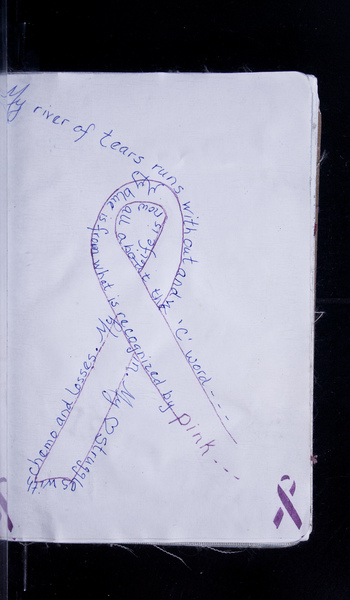 My river of tears runs without and
my life is now
all about the 'C' word - - -
is from what is recognized by pink...
chemo and losses.
My ♡ struggles